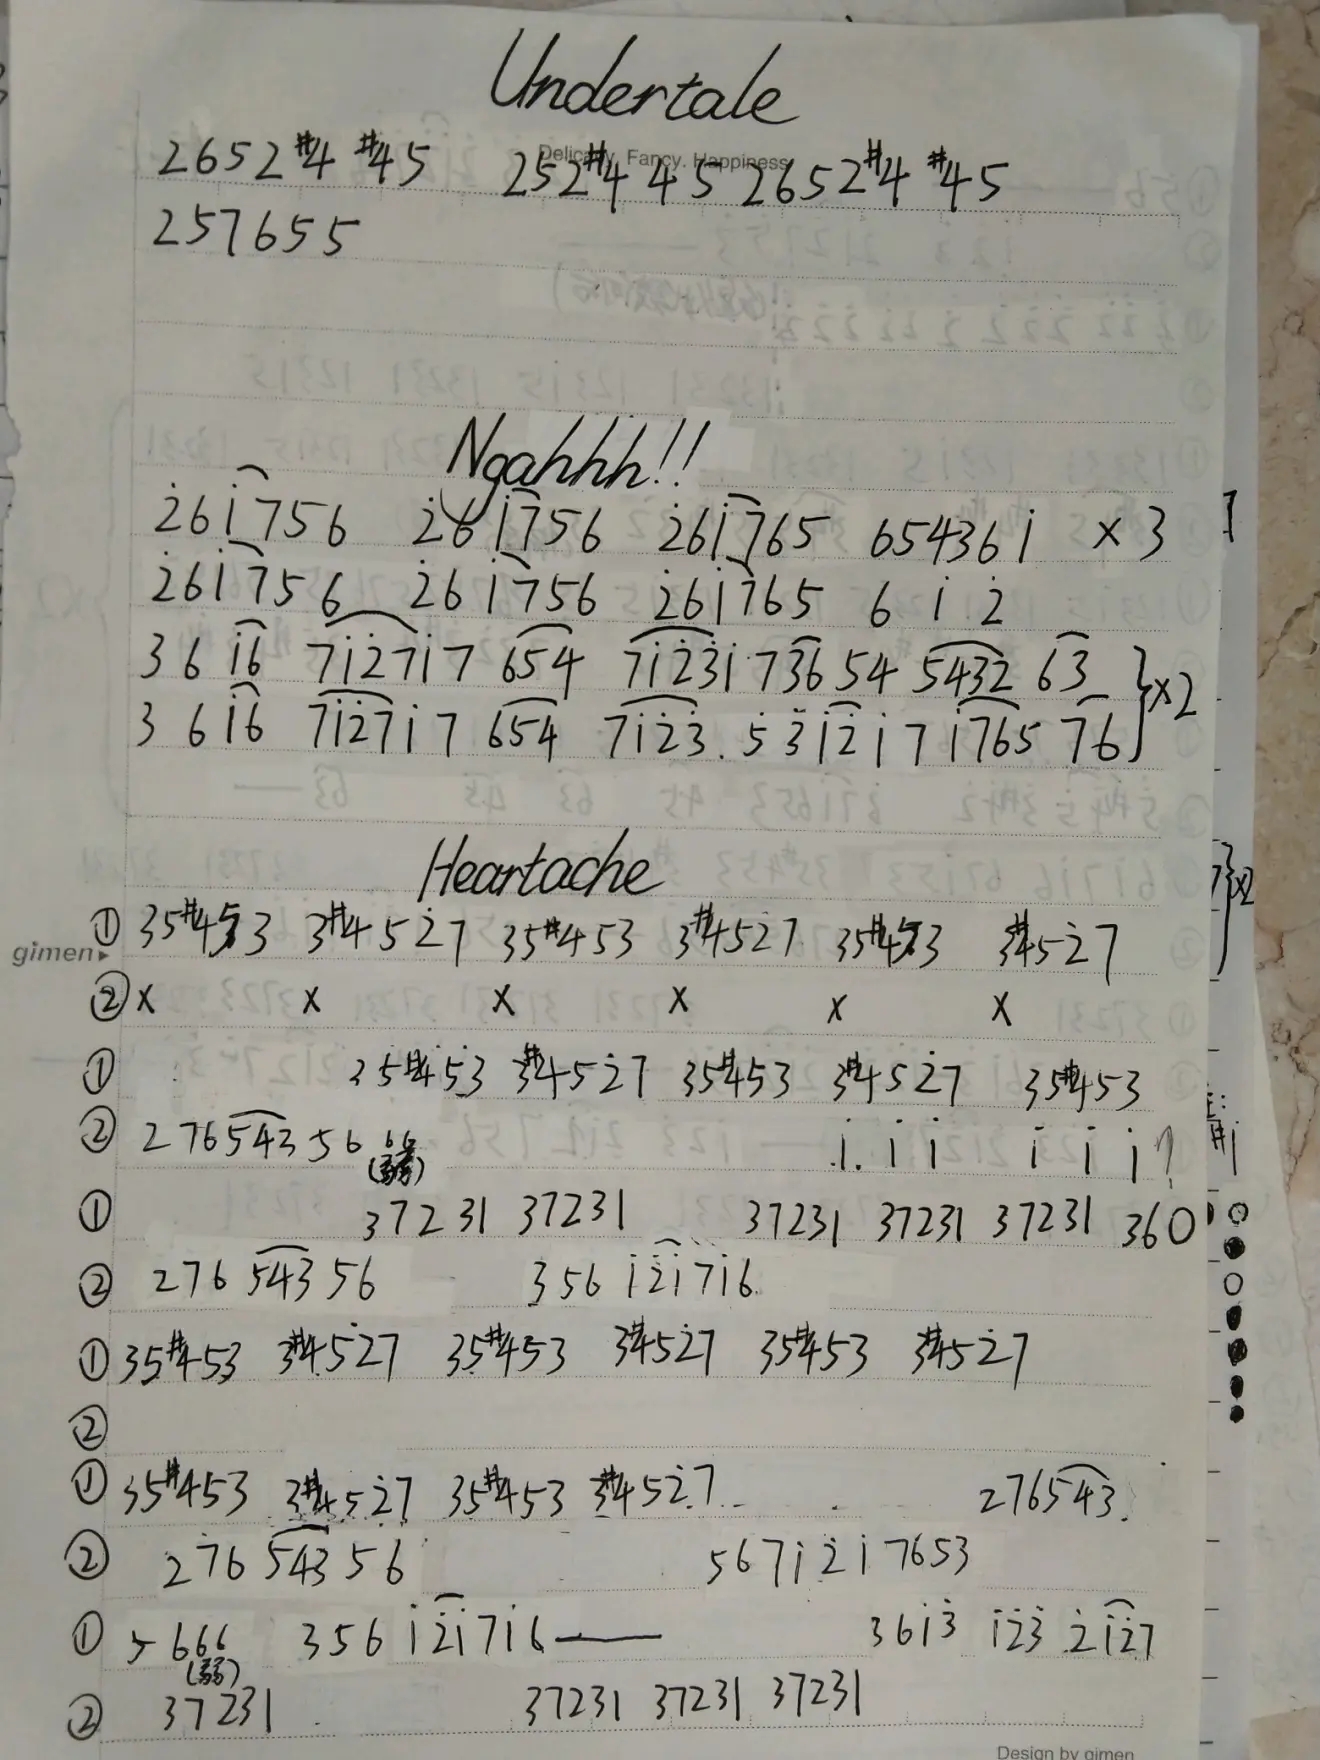 Undertale
Delicacy. Fancy. Happiness
2652#4 #45 252#4 45 2652#4 #45
257655
Ngahhh!!
2̇61̇756 2̇61̇756 2̇61̇765 654361̇ ×3
2̇61̇756 2̇61̇756 2̇61̇765 6 1̇ 2̇
3 6 1̇6 71̇2̇71̇7 654 71̇2̇3̇1̇7 36 54 5432 63
3 6 1̇6 71̇2̇71̇7 654 71̇2̇3̇. 5̇ 3̇ 1̇2̇1̇7 1̇765 76 } ×2
Heartache
① 35#453 3#452̇7 35#453 3#452̇7 35#453 3#452̇7
gimen
② × × × × × ×
① 35#453 3#452̇7 35#453 3#452̇7 35#453
② 27654356 66 1̇. 1̇ 1̇ 1̇ 1̇ 1̇ ?
(弱)
① 37231 37231 37231 37231 37231 360
② 276 543 56 356 1̇2̇1̇71̇6
① 35#453 3#452̇7 35#453 3#452̇7 35#453 3#452̇7
②
① 35#453 3#452̇7 35#453 3#452̇7 276543.
② 2̇76 543 56 5671̇2̇1̇7653
① 5666 3561̇2̇1̇71̇6—— 361̇3̇ 1̇2̇3̇ 2̇1̇2̇7
(弱)
② 37231 37231 37231 37231
Design by gimen